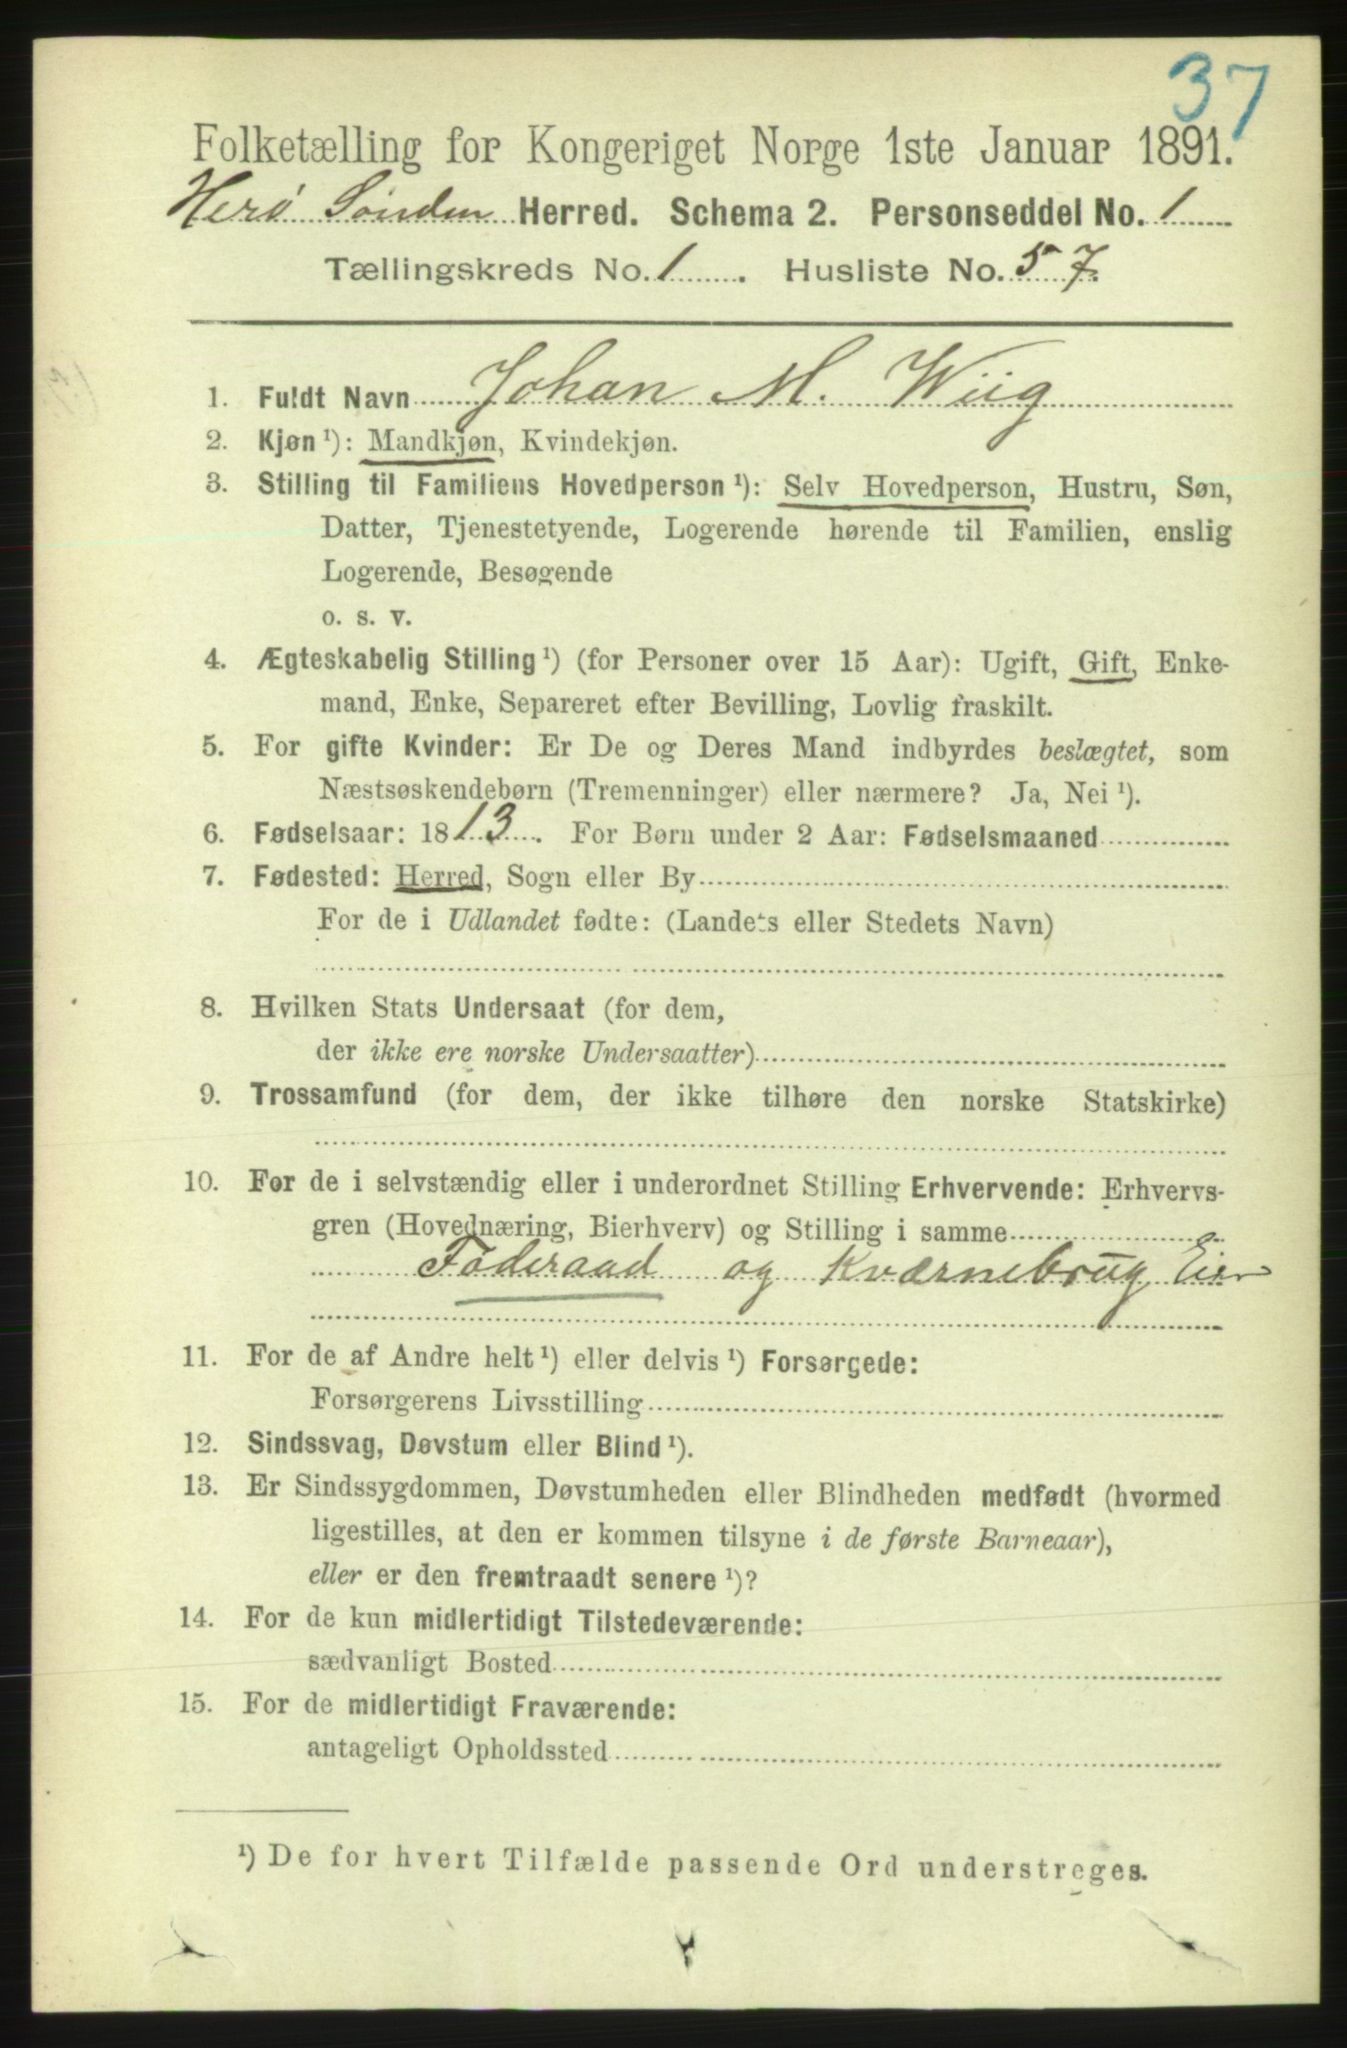 37
Folketælling for Kongeriget Norge 1ste Januar 1891.
Herø Sønden Herred. Schema 2. Personseddel No. 1
Tællingskreds No. 1. Husliste No. 57.
1. Fuldt Navn Johan M. Wiig
2. Kjøn ¹): Mandkjøn, Kvindekjøn.
3. Stilling til Familiens Hovedperson ¹): Selv Hovedperson, Hustru, Søn,
Datter, Tjenestetyende, Logerende hørende til Familien, enslig
Logerende, Besøgende
o. s. v.
4. Ægteskabelig Stilling ¹) (for Personer over 15 Aar): Ugift, Gift, Enke-
mand, Enke, Separeret efter Bevilling, Lovlig fraskilt.
5. For gifte Kvinder: Er De og Deres Mand indbyrdes beslægtet, som
Næstsøskendebørn (Tremenninger) eller nærmere? Ja, Nei ¹).
6. Fødselsaar: 1813. For Børn under 2 Aar: Fødselsmaaned
7. Fødested: Herred, Sogn eller By
For de i Udlandet fødte: (Landets eller Stedets Navn)
8. Hvilken Stats Undersaat (for dem,
der ikke ere norske Undersaatter)
9. Trossamfund (for dem, der ikke tilhøre den norske Statskirke)
10. For de i selvstændig eller i underordnet Stilling Erhvervende: Erhvervs-
gren (Hovednæring, Bierhverv) og Stilling i samme
Føderaad og Kværnebrug Eier
11. For de af Andre helt ¹) eller delvis ¹) Forsørgede:
Forsørgerens Livsstilling
12. Sindssvag, Døvstum eller Blind ¹).
13. Er Sindssygdommen, Døvstumheden eller Blindheden medfødt (hvormed
ligestilles, at den er kommen tilsyne i de første Barneaar),
eller er den fremtraadt senere ¹)?
14. For de kun midlertidigt Tilstedeværende:
sædvanligt Bosted
15. For de midlertidigt Fraværende:
antageligt Opholdssted
¹) De for hvert Tilfælde passende Ord understreges.